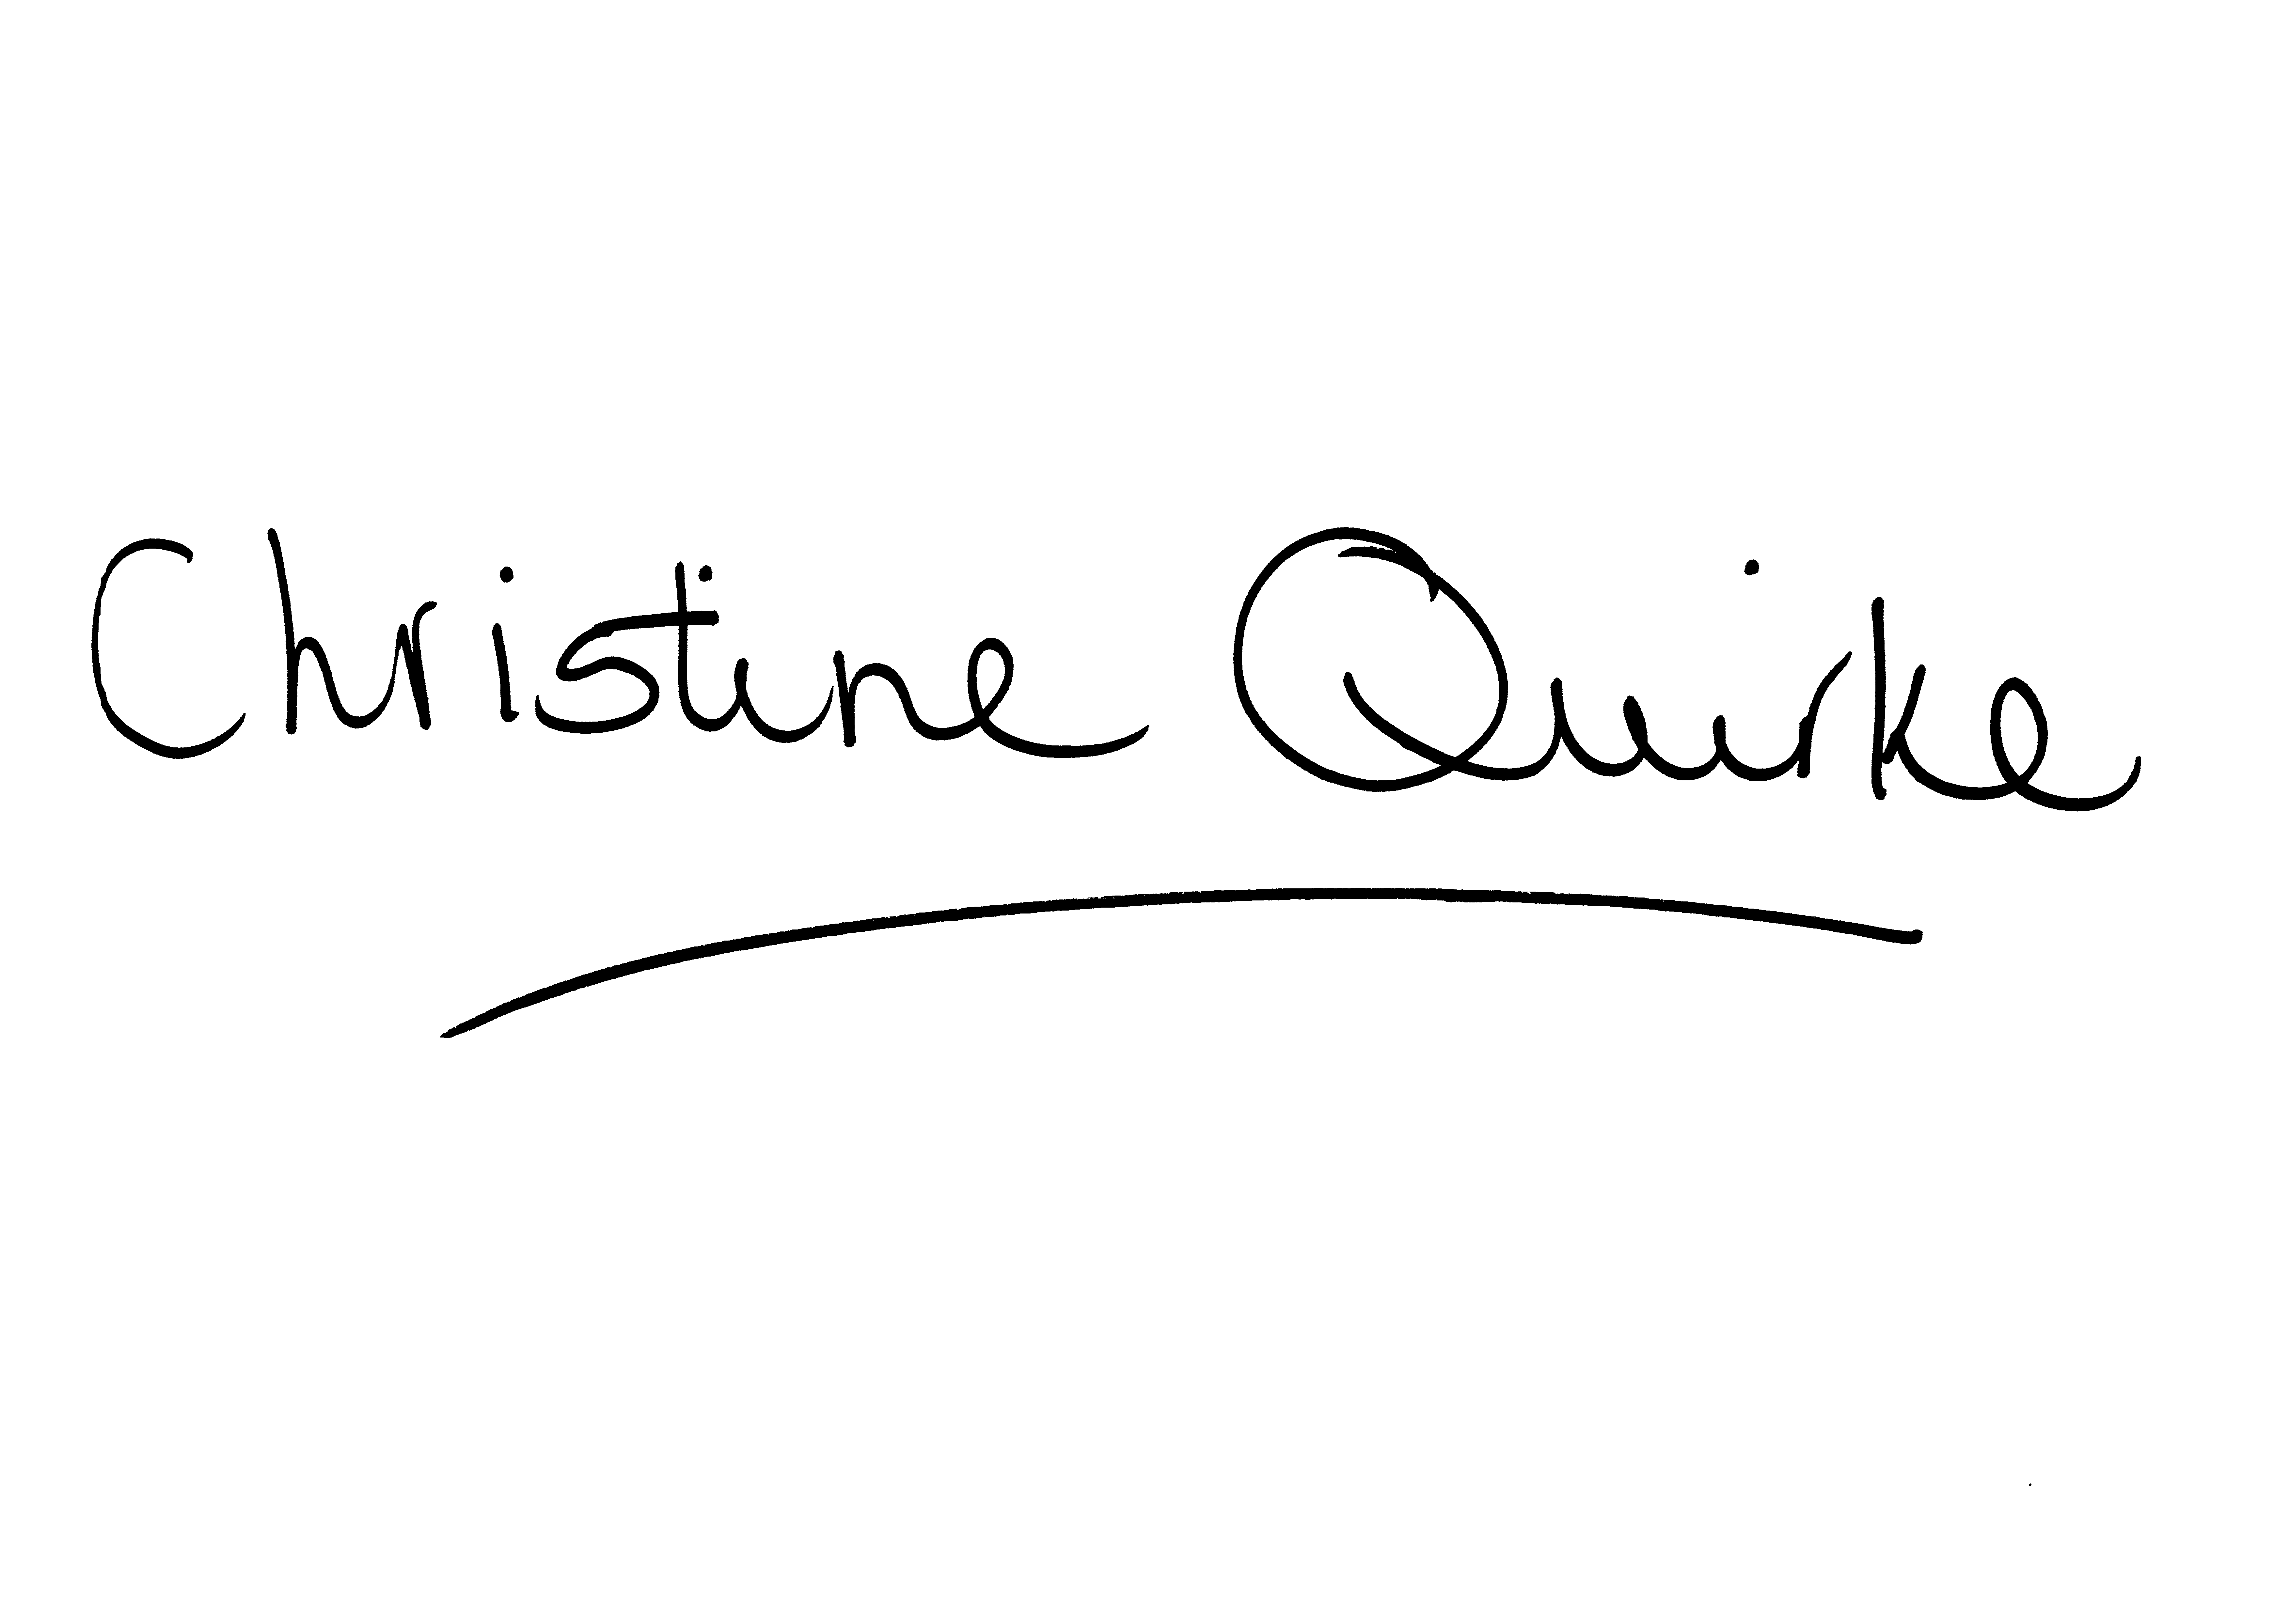 Christine Quirke